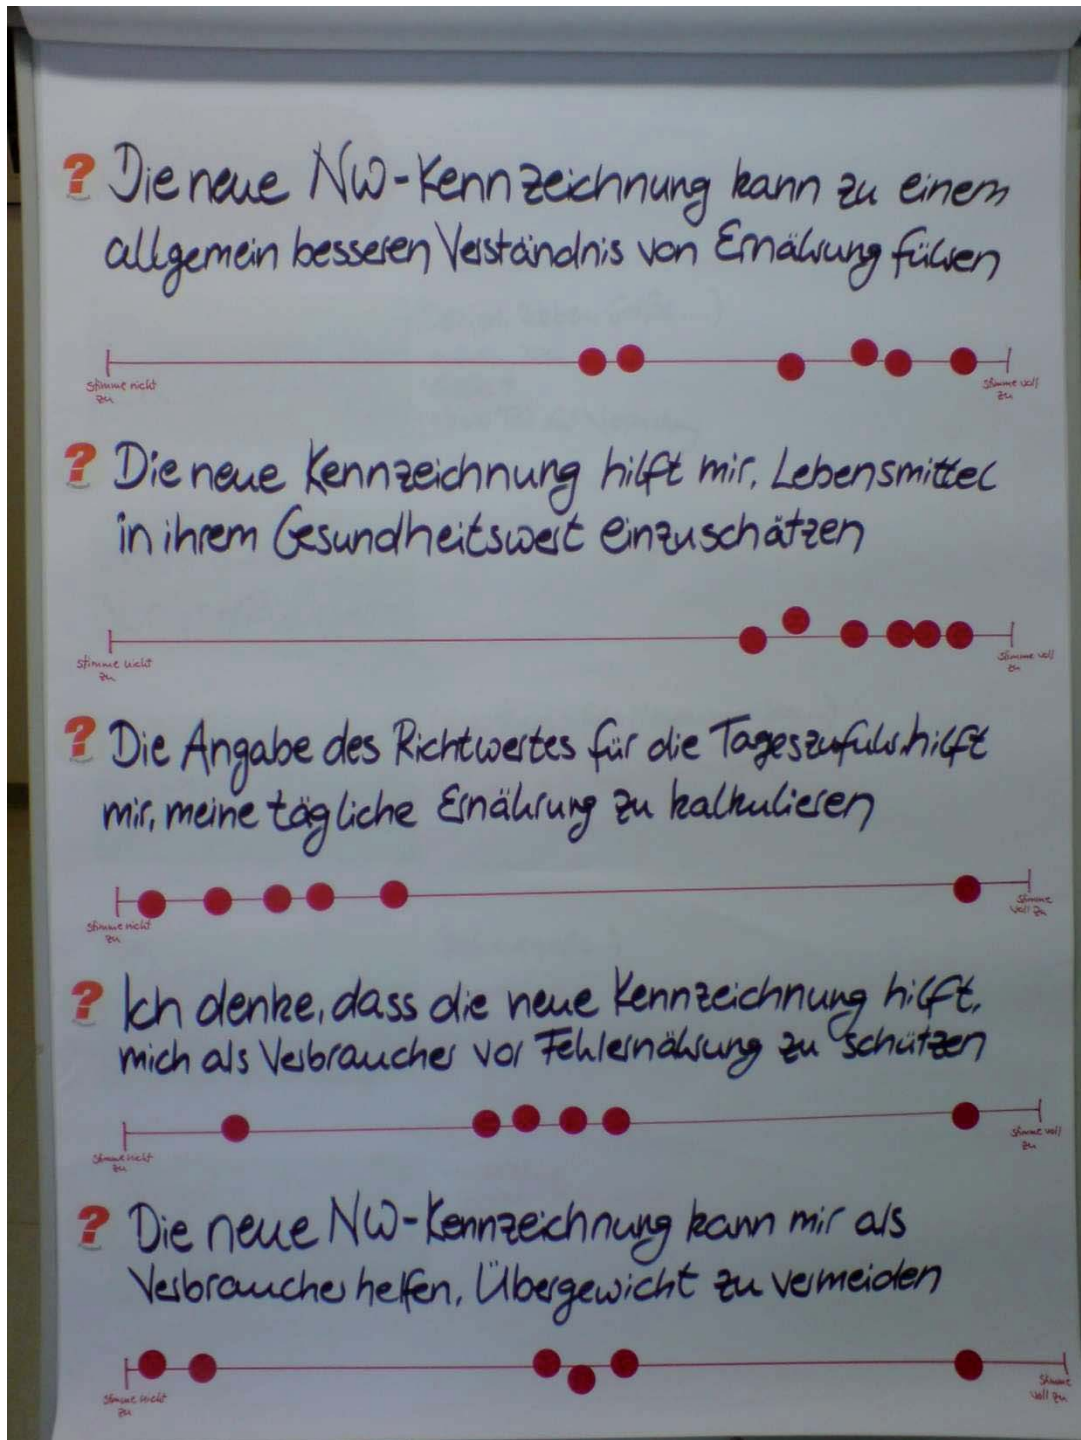 ? Die neue NW-Kennzeichnung kann zu einem
allgemein besseren Verständnis von Ernährung führen
Stimme nicht
zu
Stimme voll
zu
? Die neue Kennzeichnung hilft mir, Lebensmittel
in ihrem Gesundheitswert einzuschätzen
Stimme nicht
zu
Stimme voll
zu
? Die Angabe des Richtwertes für die Tageszufuhr hilft
mir, meine tägliche Ernährung zu kalkulieren
Stimme nicht
zu
Stimme
voll zu
? Ich denke, dass die neue Kennzeichnung hilft,
mich als Verbraucher vor Fehlernährung zu schützen
Stimme nicht
zu
Stimme voll
zu
? Die neue NW-Kennzeichnung kann mir als
Verbraucher helfen, Übergewicht zu vermeiden
Stimme nicht
zu
Stimme
voll zu